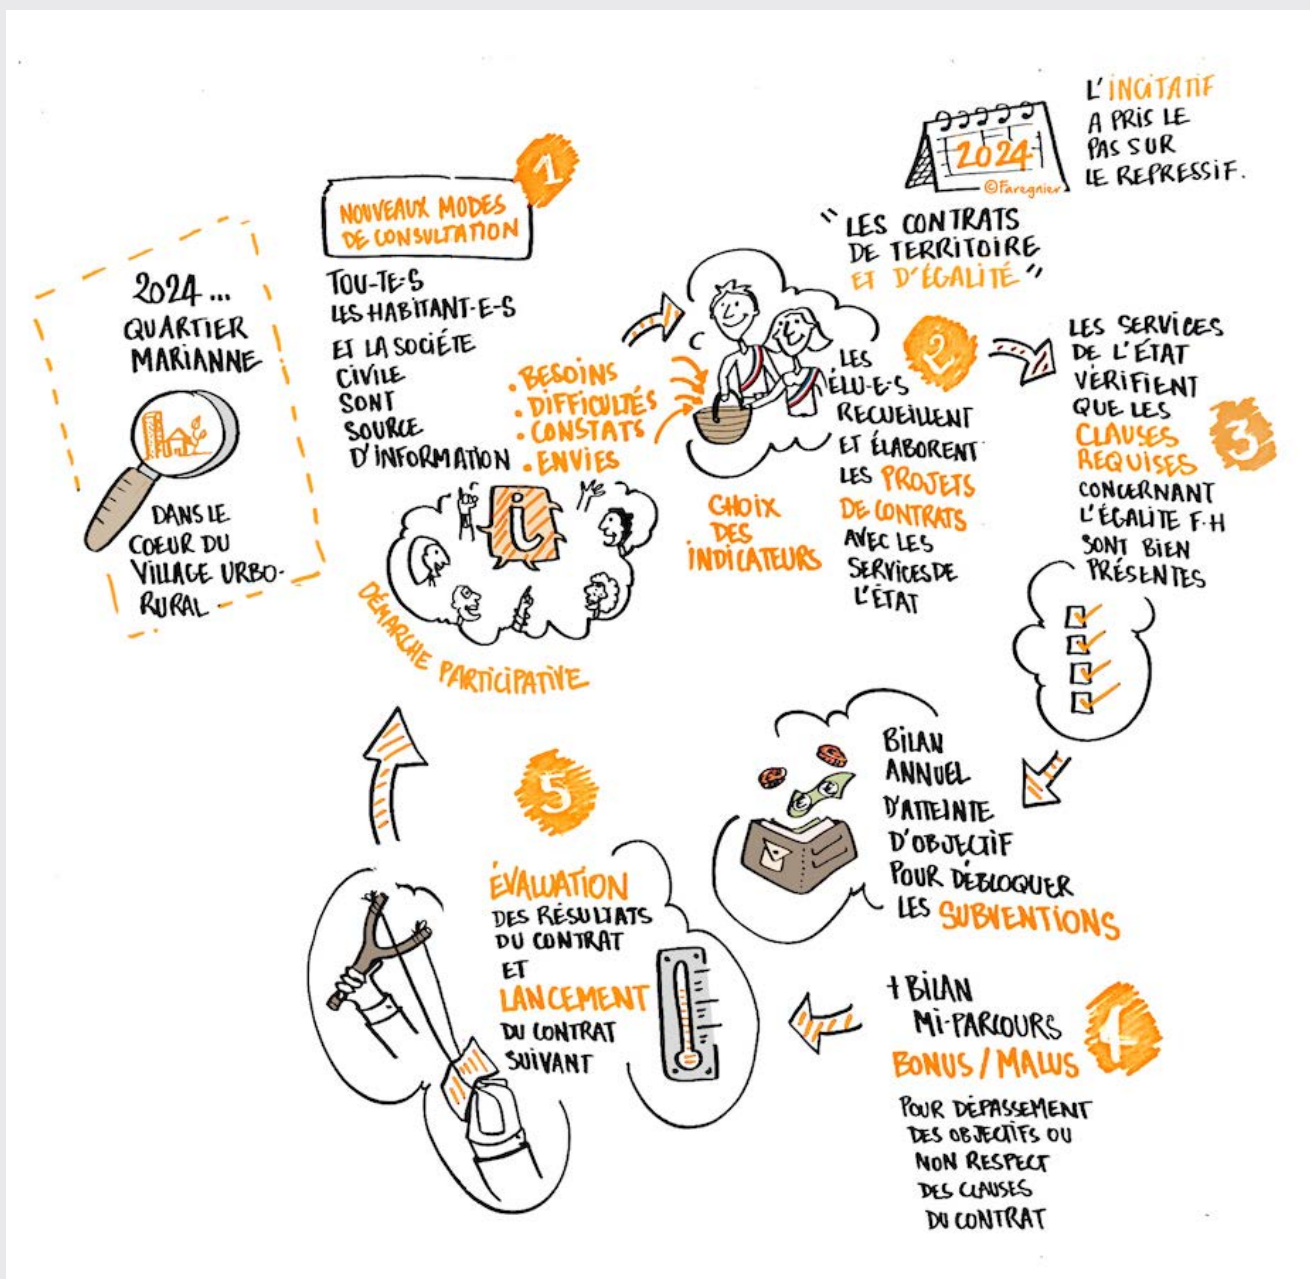 2024...
QUARTIER
MARIANNE
DANS LE
COEUR DU
VILLAGE URBO-
RURAL
1
NOUVEAUX MODES
DE CONSULTATION
TOU-TE-S
LES HABITANT-E-S
ET LA SOCIÉTE
CIVILE
SONT
SOURCE
D'INFORMATION
. BESOINS
. DIFFICULTÉS
. CONSTATS
. ENVIES
i
DÉMARCHE PARTICIPATIVE
2024
©Faregnier
L'INCITATIF
A PRIS LE
PAS SUR
LE REPRESSIF.
"LES CONTRATS
DE TERRITOIRE
ET D'ÉGALITÉ"
2
LES
ÉLU-E-S
RECUEILLENT
ET ÉLABORENT
LES PROJETS
DE CONTRATS
AVEC LES
SERVICES DE
L'ÉTAT
CHOIX
DES
INDICATEURS
LES SERVICES
DE L'ÉTAT
VÉRIFIENT
QUE LES
CLAUSES
REQUISES
CONCERNANT
L'ÉGALITE F-H
SONT BIEN
PRÉSENTES
3
BILAN
ANNUEL
D'ATTEINTE
D'OBJECTIF
POUR DÉBLOQUER
LES SUBVENTIONS
+ BILAN
MI-PARCOURS
BONUS / MALUS
4
POUR DÉPASSEMENT
DES OBJECTIFS OU
NON RESPECT
DES CLAUSES
DU CONTRAT
5
ÉVALUATION
DES RÉSULTATS
DU CONTRAT
ET
LANCEMENT
DU CONTRAT
SUIVANT